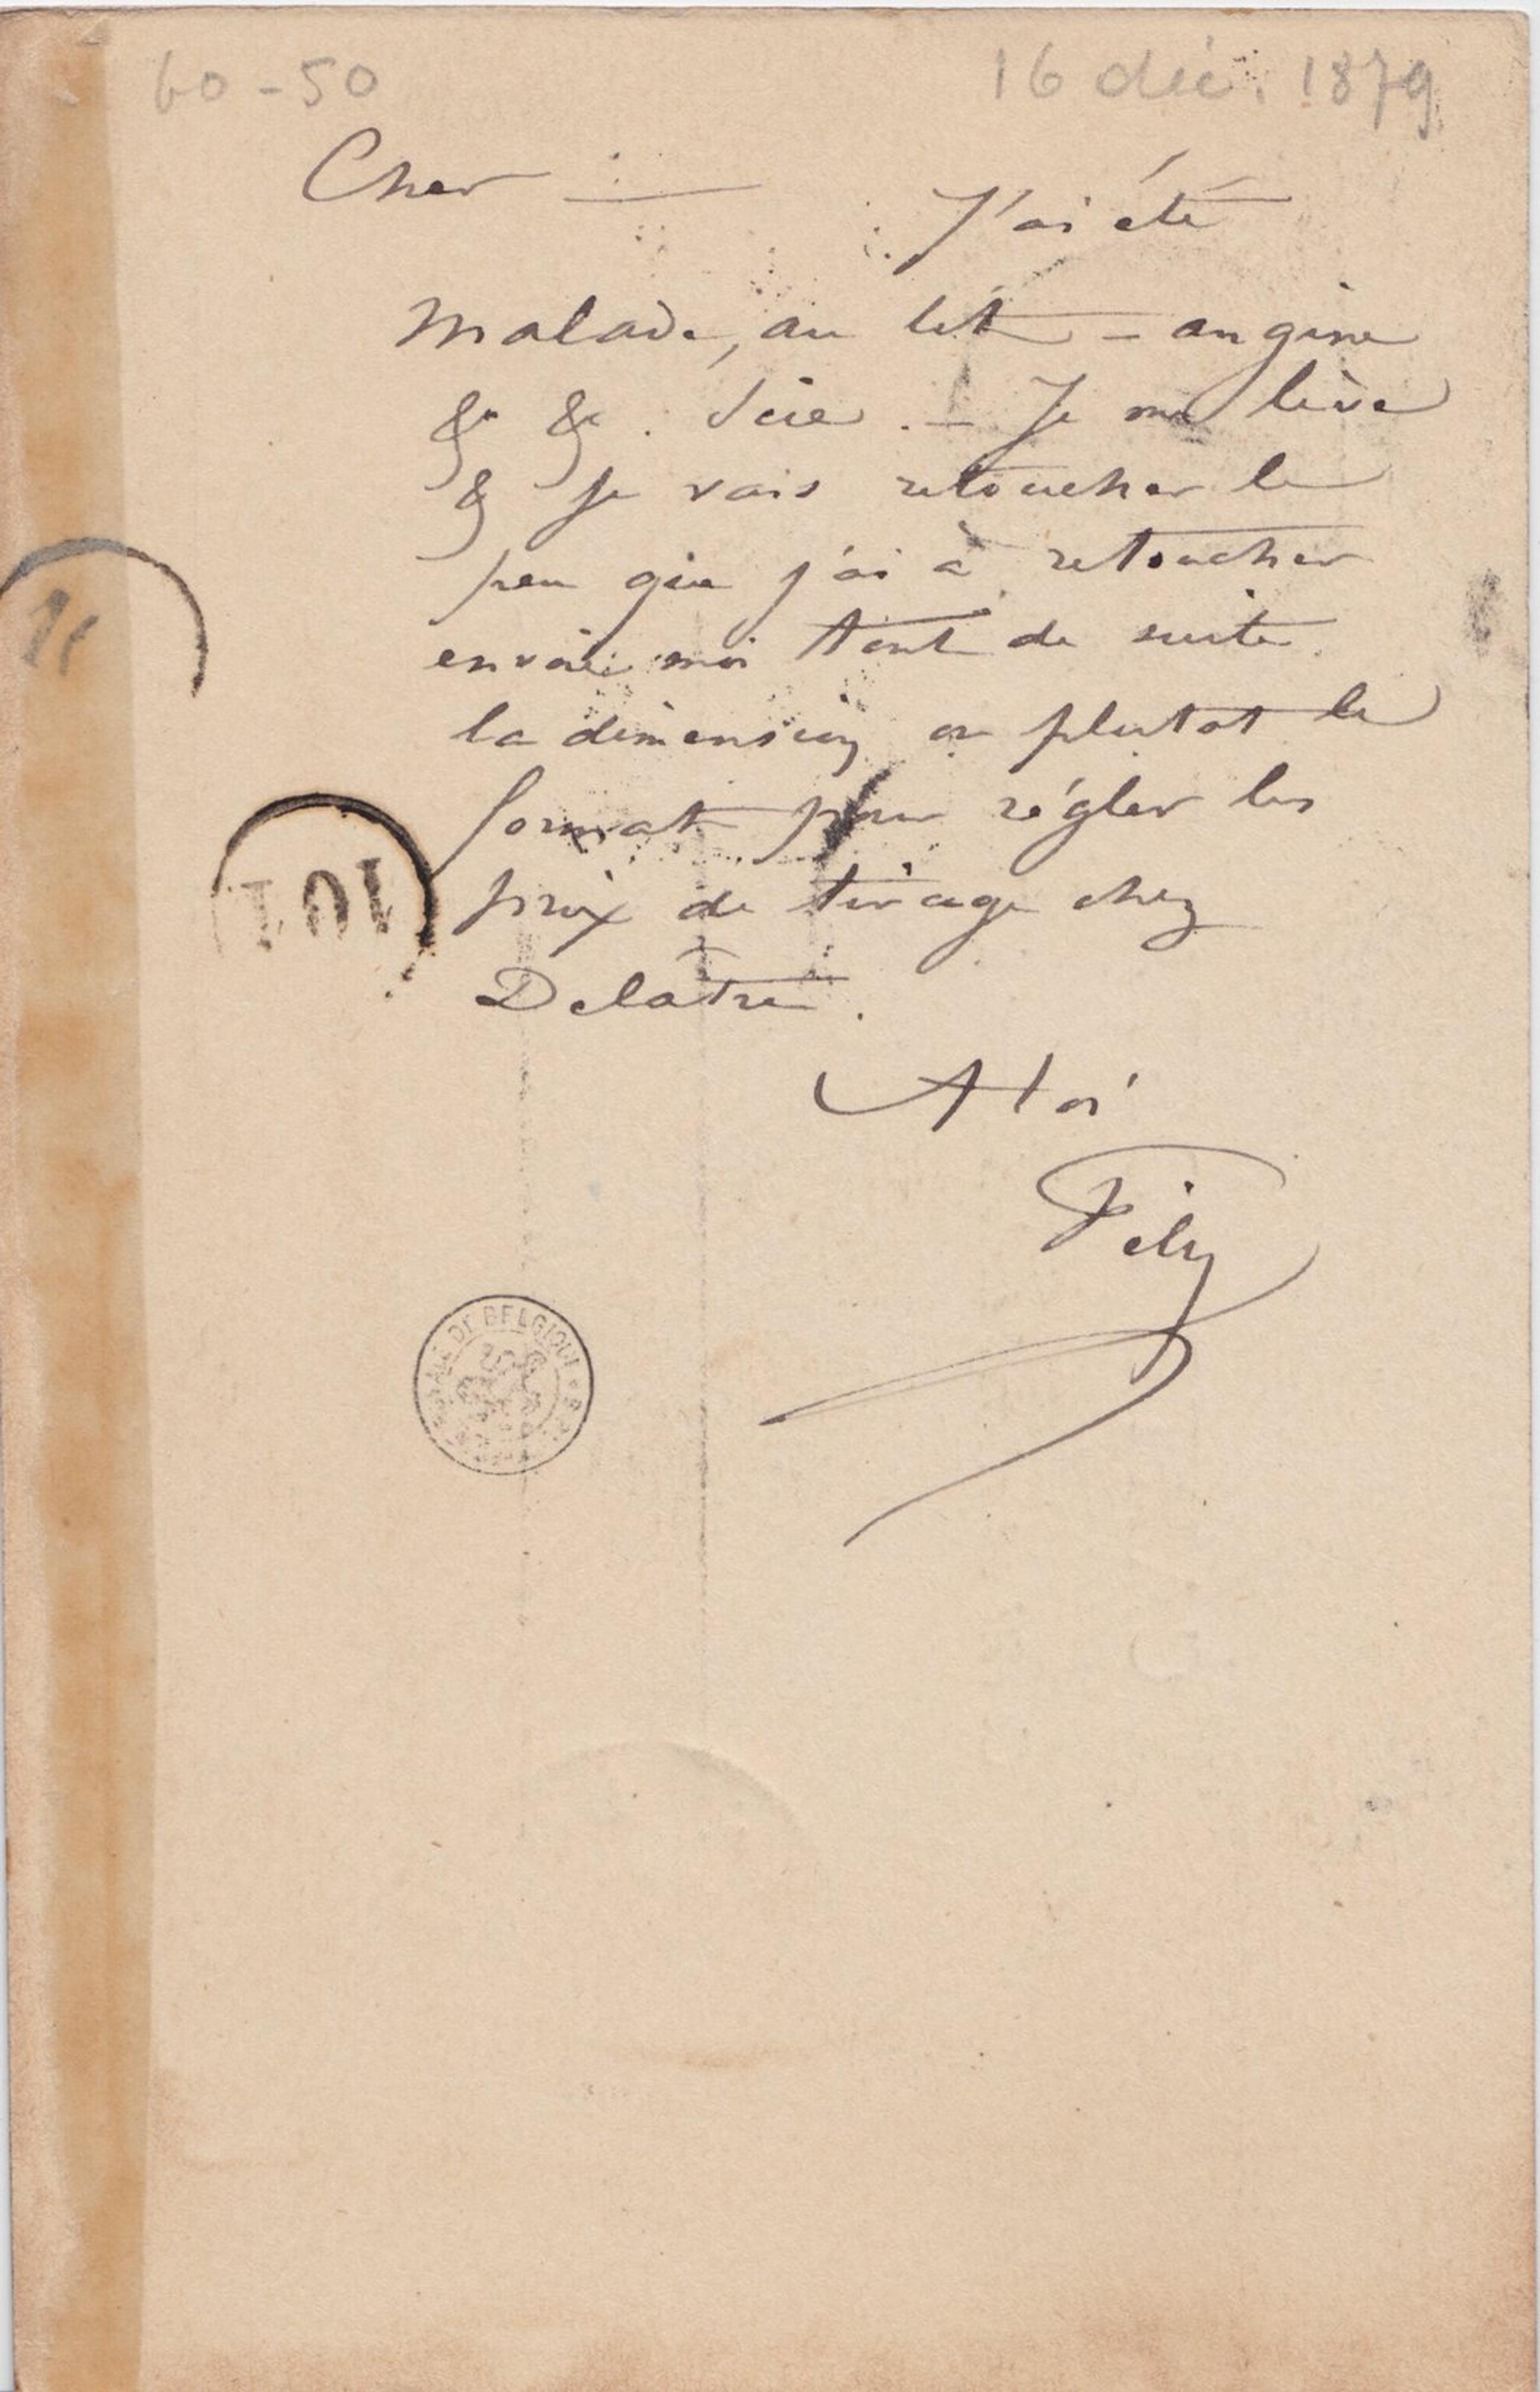 60-50
16 déc. 1879
Cher —
J'ai été
malade, au lit – angine
& & . Scie . – Je me lève
& je vais retoucher le
peu que j'ai à retoucher
envoie moi tout de suite
la dimension ou plutot le
format pour régler les
prix de tirage chez
Delâtre .
A toi
Fély
101
DE BELGIQUE